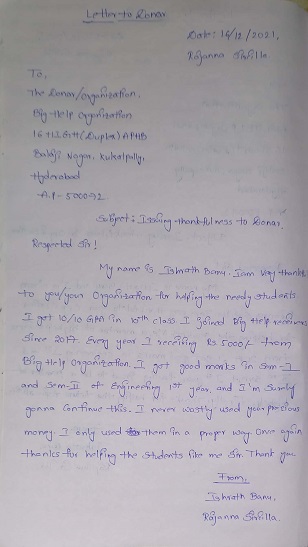 Letter to Donar
Date: 14/12/2021,
Rajanna Sirsilla
To,
The Donar/Organization,
Big Help Organization
16+12 G+1(Duplex) APHB
Balaji Nagar, Kukatpally,
Hyderabad
A.P - 500072
Subject: Issuing thankfulness to Donar,
Respected Sir!
My name is Ishrath Banu. I am Very thankful
to you/your Organization for helping the needy students
I got 10/10 GPA in 10th class. I joined Big Help receivers
Since 2017. Every year I receiving Rs 5000/- from
Big Help Organization. I got good marks in Sem-I
and Sem-II of Engineering 1st year, and I'm Surely
gonna Continue this. I never wastly used your precious
money. I only used them in a proper way once again
thanks for helping the Students like me Sir. Thank you.
From,
Ishrath Banu,
Rajanna Sirsilla.